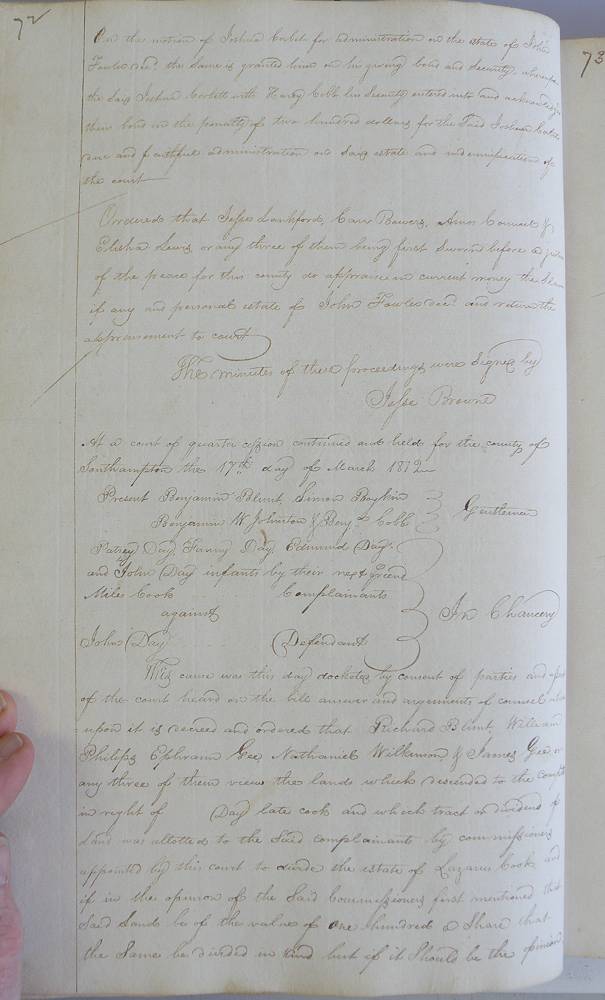 72
73
On the motion of Joshua Corbet for administration on the estate of John
Fowler decd. the same is granted him on his giving bond and security, whereupon
the said Joshua Corbett with Hardy Cobb his Security entered into and acknowledged
their bond in the penalty of two hundred dollars for the said Joshua Corbet
due and faithful administration on said estate and indemnification of
the court
Ordered that Jesse Lankford, Carr Bowers, Amos Council &
Elisha Lewis or any three of them being first sworn before a Justice
of the peace for this county do appraise in current money the slaves
if any and personal estate of John Fowler decd. and return the
appraisement to court
The minutes of these proceedings were Signed by
Jesse Browne
At a court of quarter session continued and held for the county of
Southampton the 17th day of March 1812
Present Benjamin Blunt Simon Boykin
Benjamin W Johnston & Benj. Cobb
Gentlemen
Patsey Day, Fanny Day, Edmund Day
and John Day infants by their next friend
Miles Cook Complainants
against
In Chancery
John Day Defendant
This cause was this day docketed by consent of parties and
of the court heard on the bill answer and arguments of counsel
upon it is decreed and ordered that Richard Blunt, William
Philips, Ephraim Gee, Nathaniel Wilkinson, & James Gee or
any three of them view the lands which descended to the compts
in right of Day late cook and which tract or dividend of
land was allotted to the said complainants by commissioners
appointed by this court to divide the estate of Lazarus Cook and
if in the opinion of the said Commissioners first mentioned the
said Lands be of the value of one hundred a Share that
the same be divided in kind but if it should be the opinion